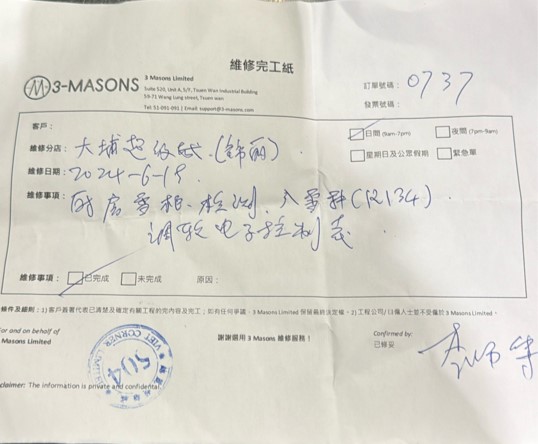 維修完工紙
3-MASONS
3 Masons Limited
Suite 529, Unit A, 5/F, Tsuen Wan Industrial Building
59-71 Wang Lung street, Tsuen wan
Tel: 51-091-991 | Email: support@3-masons.com
訂單號碼： 0737
發票號碼：
客戶：
日間 (9am-7pm)
夜間 (7pm-9am)
星期日及公眾假期
緊急單
維修分店： 大埔超级城
維修日期： 2024-6-19
維修事項： 厨房雪柜 检测 入雪种(R134)
调较电子控制表
維修事項： 已完成 未完成 原因：
條件及細則：1) 客戶簽署代表已清楚及確定有關工程的完內容及完工；如有任何爭議，3 Masons Limited 保留最終決定權。2) 工程公司
For and on behalf of
Masons Limited
謝謝選用 3 Masons 維修服務！
Confirmed by:
已修妥
VIET CORNER
504
claimer: The information is private and confidential